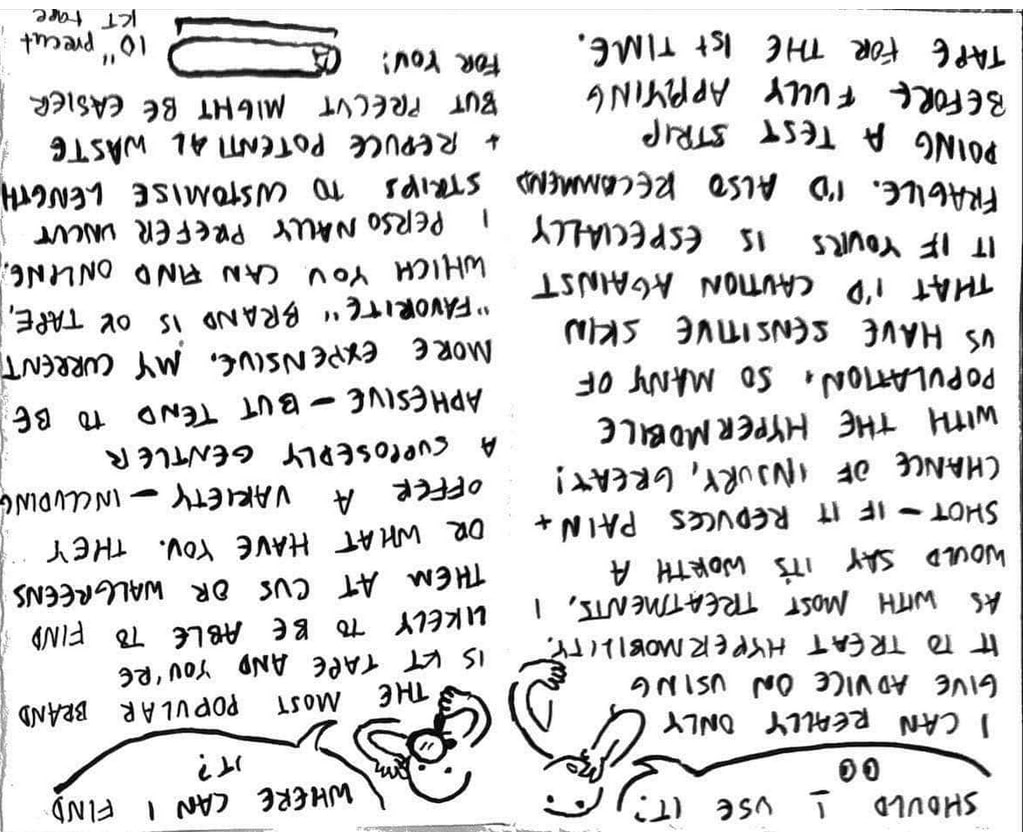 SHOULD I USE IT?
I CAN REALLY ONLY
GIVE ADVICE ON USING
IT TO TREAT HYPERMOBILITY.
AS WITH MOST TREATMENTS, I
WOULD SAY IT'S WORTH A
SHOT – IF IT REDUCES PAIN +
CHANCE OF INJURY, GREAT!
WITH THE HYPERMOBILE
POPULATION, SO MANY OF
US HAVE SENSITIVE SKIN
THAT I'D CAUTION AGAINST
IT IF YOURS IS ESPECIALLY
FRAGILE. I'D ALSO RECOMMEND
DOING A TEST STRIP
BEFORE FULLY APPLYING
TAPE FOR THE 1st TIME.
WHERE CAN I FIND
IT?
THE MOST POPULAR BRAND
IS KT TAPE AND YOU'RE
LIKELY TO BE ABLE TO FIND
THEM AT CVS OR WALGREENS
OR WHAT HAVE YOU. THEY
OFFER A VARIETY – INCLUDING
A SUPPOSEDLY GENTLER
ADHESIVE – BUT TEND TO BE
MORE EXPENSIVE. MY CURRENT
"FAVORITE" BRAND IS OK TAPE,
WHICH YOU CAN FIND ONLINE.
I PERSONALLY PREFER UNCUT
STRIPS TO CUSTOMISE LENGTH
+ REDUCE POTENTIAL WASTE
BUT PRECUT MIGHT BE EASIER
FOR YOU!
10" precut
KT tape